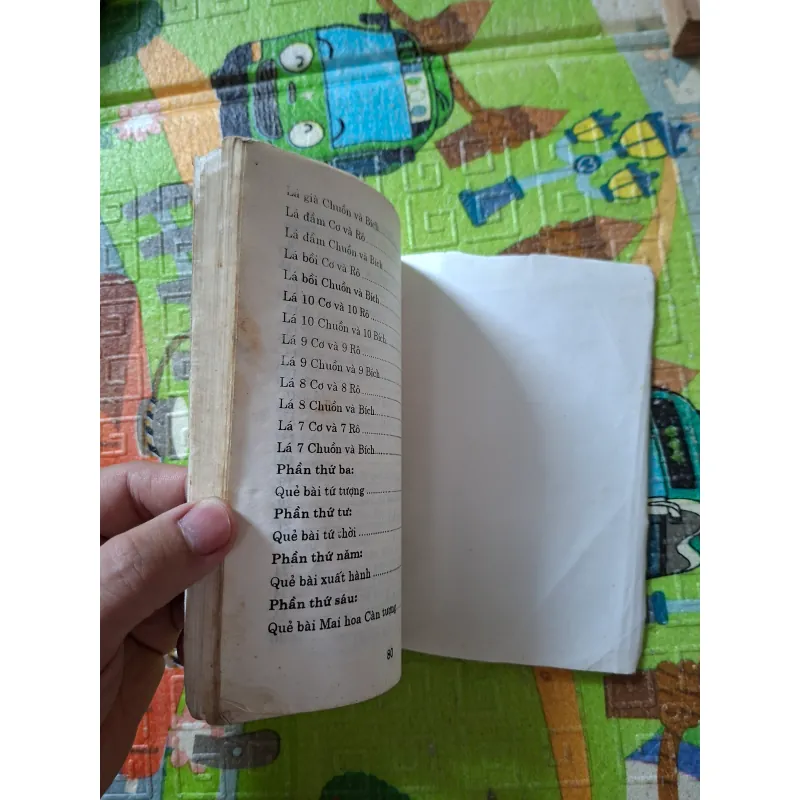 Lá già Chuồn và Bích
Lá đầm Cơ và Rô
Lá đầm Chuồn và Bích
Lá bồi Cơ và Rô
Lá bồi Chuồn và Bích
Lá 10 Cơ và 10 Rô
Lá 10 Chuồn và 10 Bích
Lá 9 Cơ và 9 Rô
Lá 9 Chuồn và 9 Bích
Lá 8 Cơ và 8 Rô
Lá 8 Chuồn và Bích
Lá 7 Cơ và 7 Rô
Lá 7 Chuồn và Bích
Phần thứ ba:
Quẻ bài tứ tượng
Phần thứ tư:
Quẻ bài tứ thời
Phần thứ năm:
Quẻ bài xuất hành
Phần thứ sáu:
Quẻ bài Mai hoa Càn tượng
80